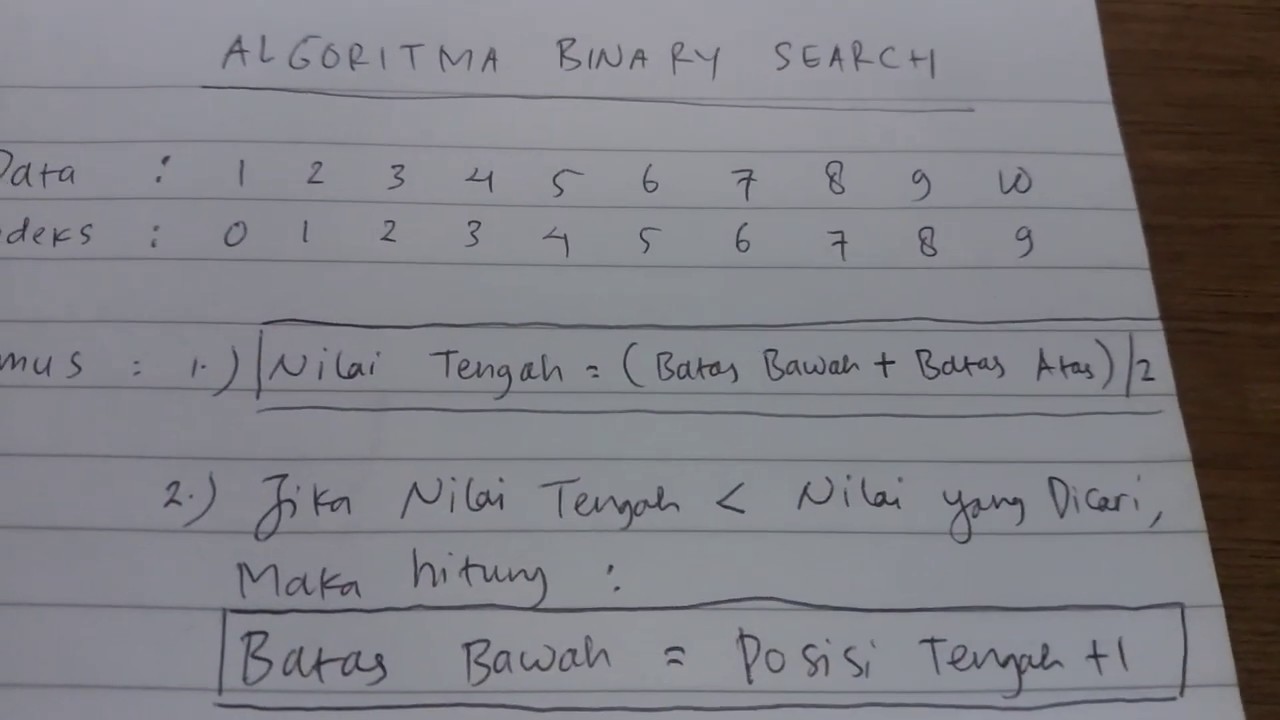 ALGORITMA BINARY SEARCH
Data : 1 2 3 4 5 6 7 8 9 10
deks : 0 1 2 3 4 5 6 7 8 9
mus : 1.) Nilai Tengah = (Batas Bawah + Batas Atas)/2
2.) Jika Nilai Tengah < Nilai yang Dicari,
Maka hitung :
Batas Bawah = Posisi Tengah +1